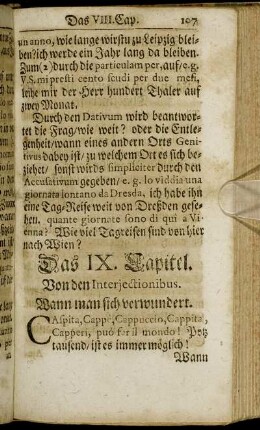 Das VIII. Cap. 107
un anno, wie lange wirstu zu Leipzig blei-
ben? ich werde ein Jahr lang da bleiben.
Zum (2) durch die particulam per, auf/ e. g.
V. S. mi presti cento scudi per due mesi,
leihe mir der Herr hundert Thaler auf
zwey Monat.
Durch den Dativum wird beantwor-
tet die Frag/ wie weit? oder die Entle-
genheit/ wann eines andern Orts Geni-
tivus dabey ist/ zu welchem Ort es sich be-
ziehet/ sonst wirds simpliciter durch den
Accusativum gegeben/ e. g. lo viddia una
giornata lontano da Dresda, ich habe ihn
eine Tag-Reise weit von Dreßden gese-
hen. quante giornate sono di qui a Vi-
enna? Wie viel Tagreisen sind von hier
nach Wien?
Das IX. Capitel.
Von den Interjectionibus.
Wann man sich verwundert.
CAspita, Cappè, Cappuccio, Cappita,
Capperi, può far il mondo! Potz
tausend/ ist es immer möglich!
Wann